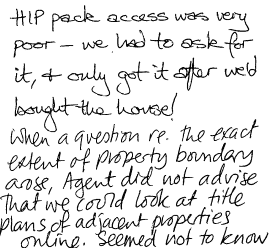 HIP pack access was very
poor – we had to ask for
it, & only got it after we'd
bought the house!
When a question re. the exact
extent of property boundary
arose, Agent did not advise
that we could look at title
plans of adjacent properties
online. Seemed not to know